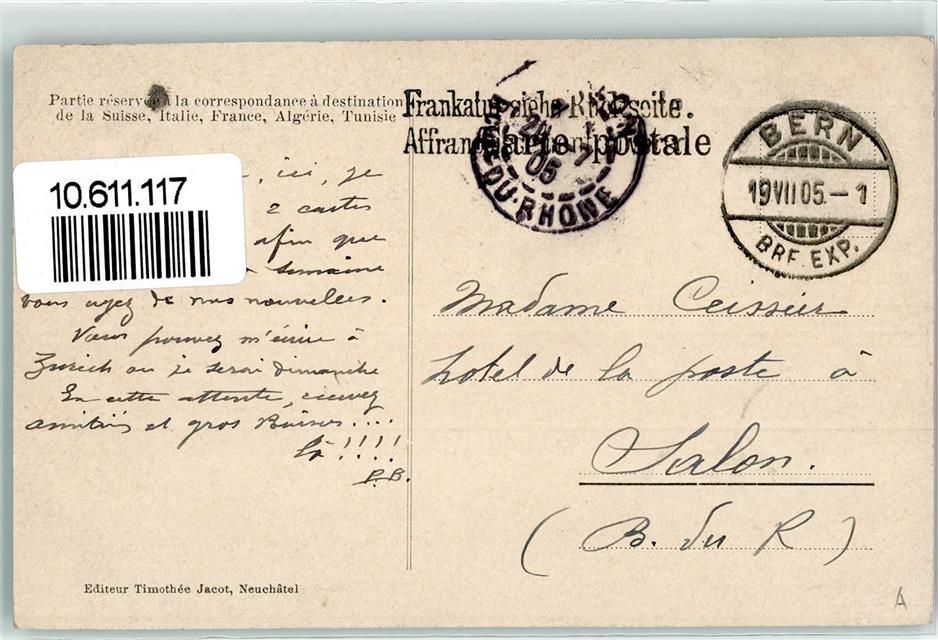 Partie réservée à la correspondance à destination
de la Suisse, Italie, France, Algérie, Tunisie
Frankatur siehe Rückseite.
Carte postale
BERN
19 VII 05. - 1
BRF. EXP.
DU-RHONE
05
10.611.117
, ici, je
2 cartes
afin que
semaine
vous ayez de nos nouvelles.
Vous pouvez m'écrire à
Zurich ou je serai Dimanche
En cette attente, recevez
amitiés et gros Baisers....
là !!!!
P.B.
Madame Ceissier
hotel de la poste à
Salon.
(B. du R)
Editeur Timothée Jacot, Neuchâtel
A